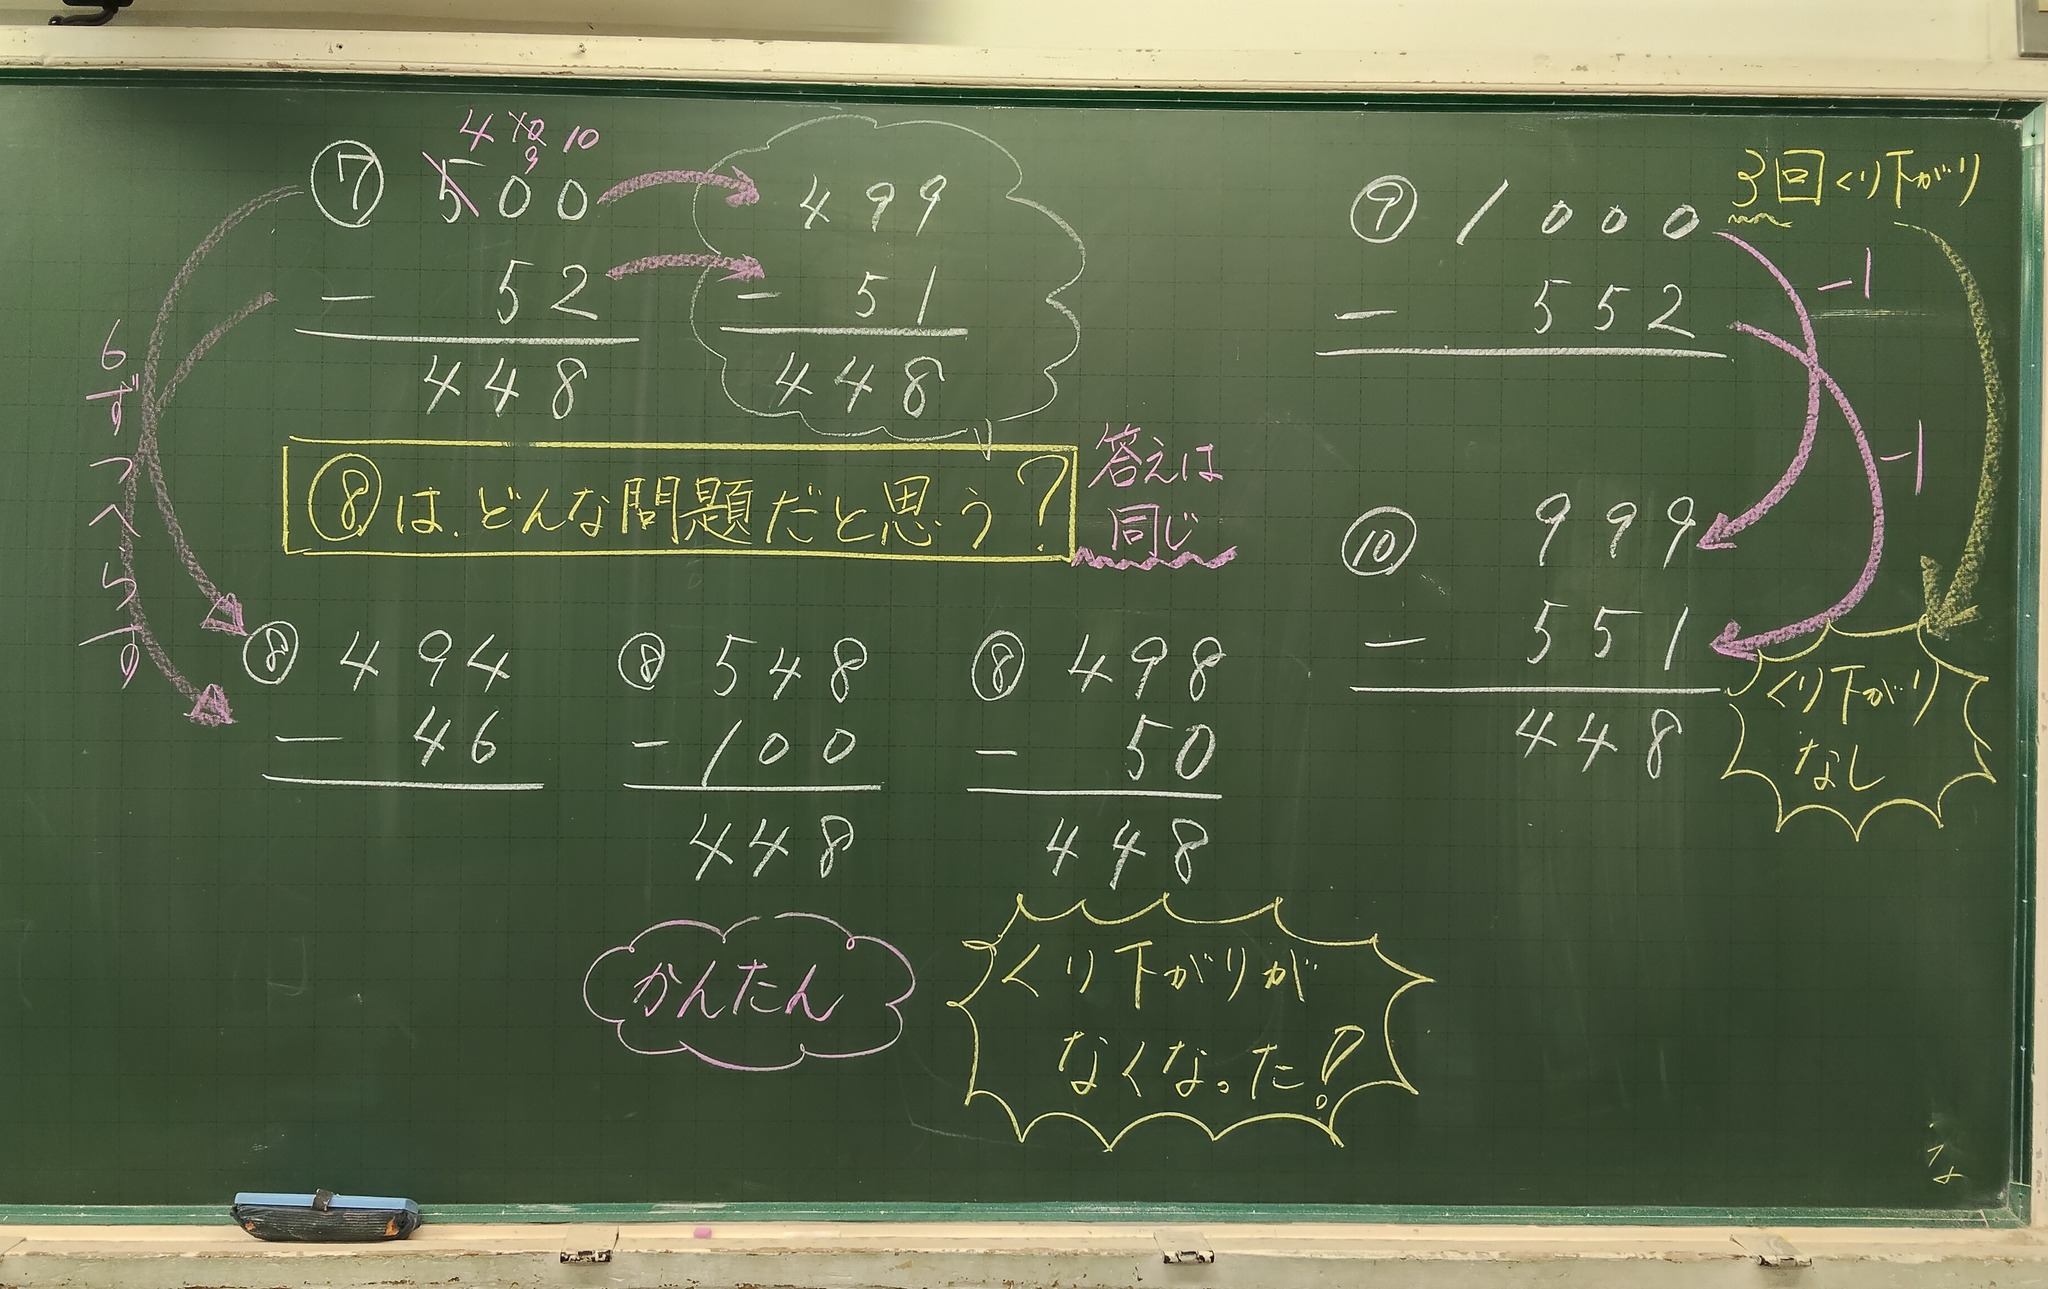 4 10 10
9
⑦ 500
- 52
448
499
- 51
448
6ずつへらす
⑧は、どんな問題だと思う?
答えは
同じ
⑧ 494
- 46
⑧ 548
- 100
448
⑧ 498
- 50
448
かんたん
くり下がりが
なくなった!
⑨ 1000
- 552
3回くり下がり
-1
-1
⑩ 999
- 551
448
くり下がり
なし